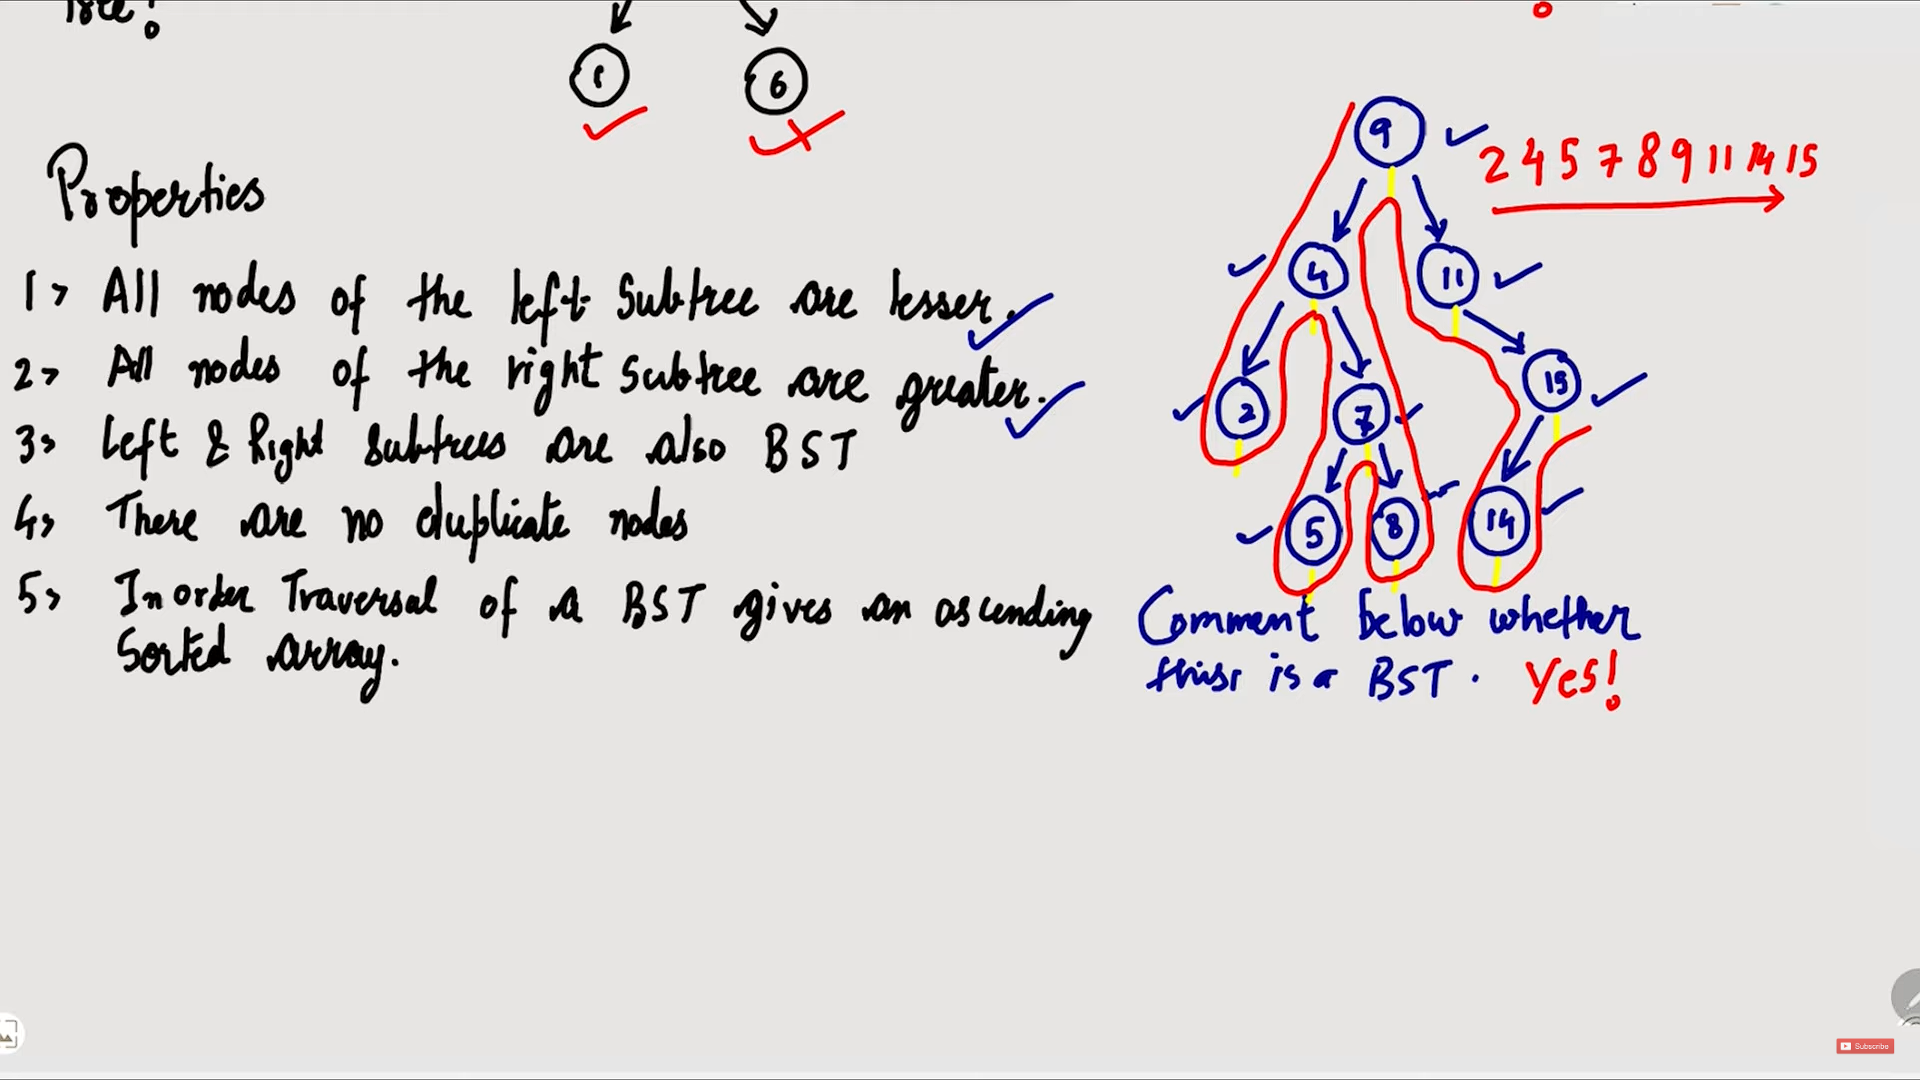 1
6
Properties
1> All nodes of the left Subtree are lesser.
2> All nodes of the right Subtree are greater.
3> Left & Right Subtrees are also BST
4> There are no duplicate nodes
5> Inorder Traversal of a BST gives an ascending
Sorted array.
9
2 4 5 7 8 9 11 14 15
4
11
2
7
15
5
8
14
Comment below whether
this is a BST. Yes!
Subscribe